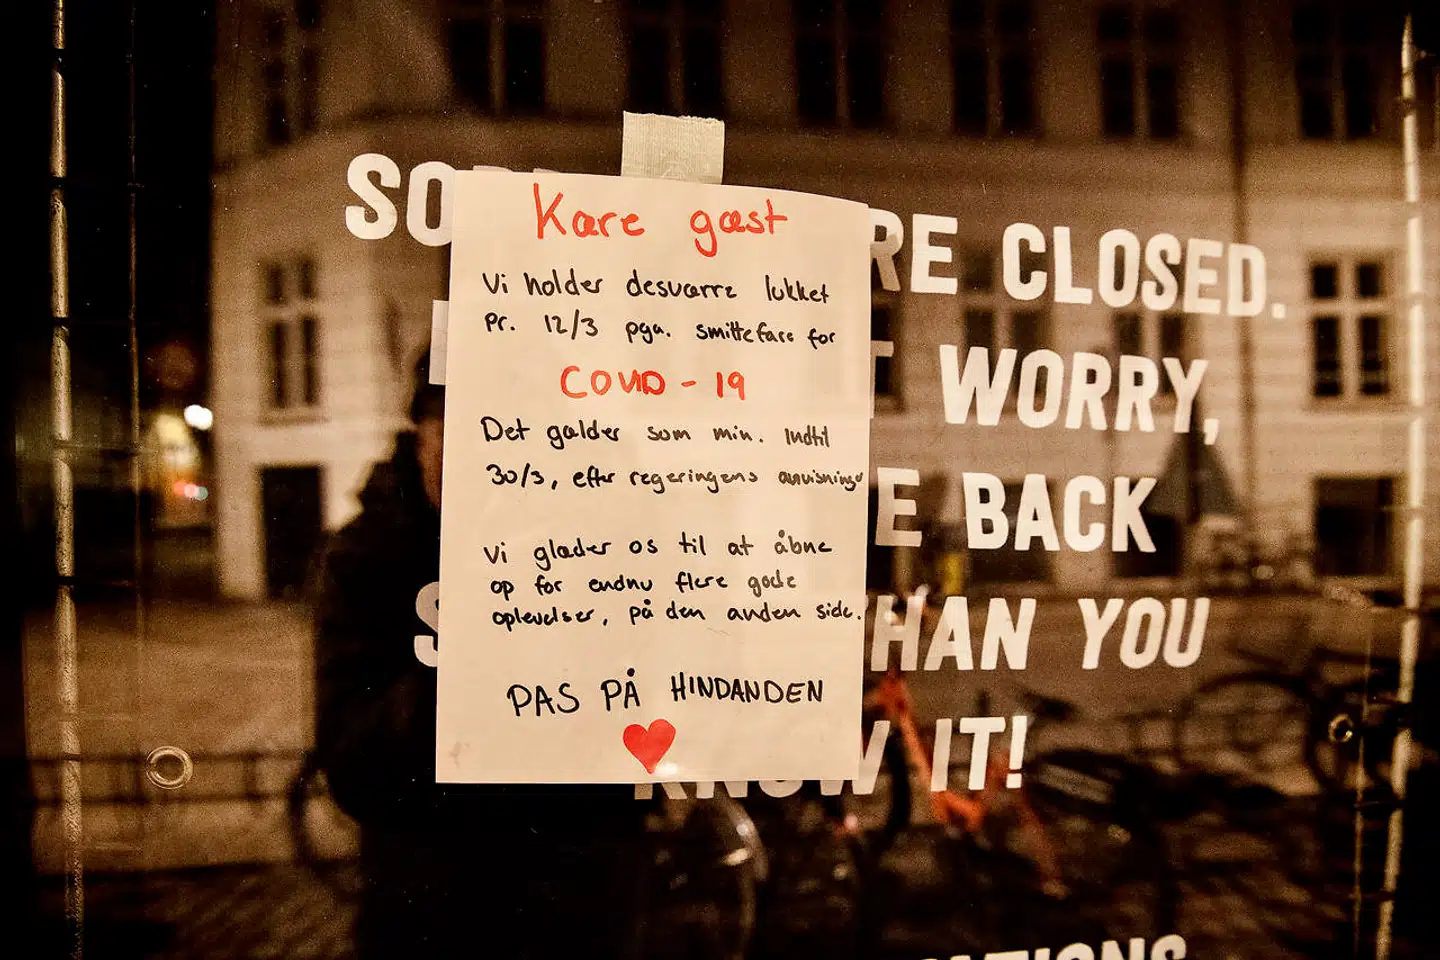 Kære gæst
Vi holder desværre lukket
pr. 12/3 pga. smittefare for
COVID - 19
Det gælder som min. indtil
30/3, efter regeringens anvisninger
Vi glæder os til at åbne
op for endnu flere gode
oplevelser, på den anden side.
PAS PÅ HINDANDEN
SO RE CLOSED.
T WORRY,
E BACK
S HAN YOU
KNOW IT!